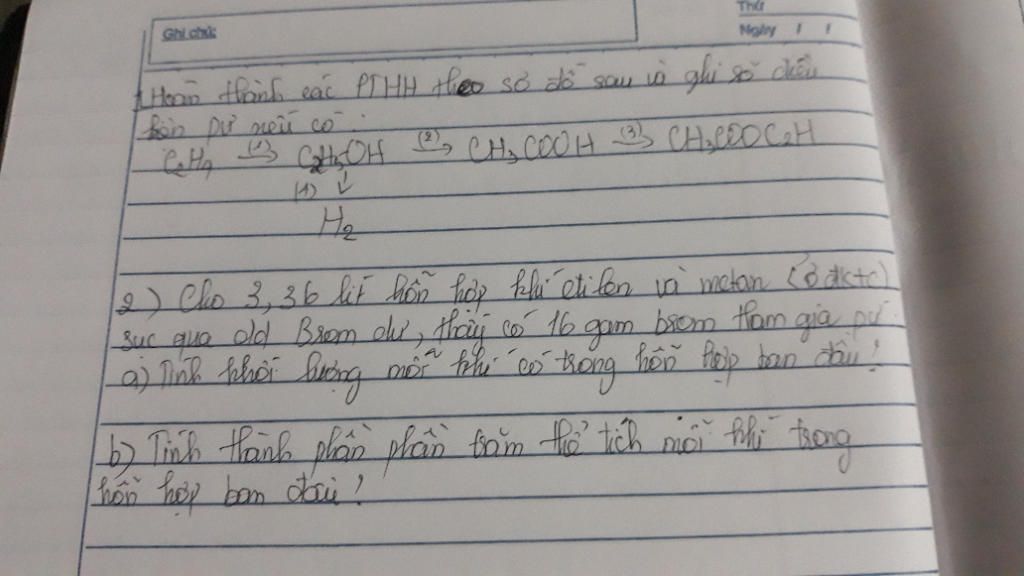 Ghi chú:
Thứ
Ngày / /
1. Hoàn thành các PTHH theo sơ đồ sau và ghi rõ điều
kiện pứ nếu có:
C2H4 (1)→ C2H5OH (2)→ CH3COOH (3)→ CH3COOC2H
(4) ↓
H2
2) Cho 3,36 lít hỗn hợp khí etilen và metan (ở đktc)
sục qua dd Brom dư, thấy có 16 gam brom tham gia pứ.
a) Tính khối lượng mỗi khí có trong hỗn hợp ban đầu!
b) Tính thành phần phần trăm thể tích mỗi khí trong
hỗn hợp ban đầu!